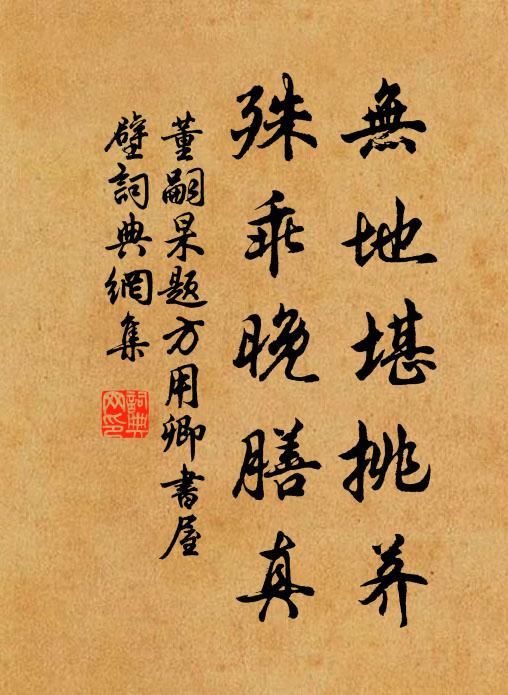 無地堪挑荠
殊乖晚膳真
董嗣杲题方用卿書屋
壁詞典網集
詞典網印